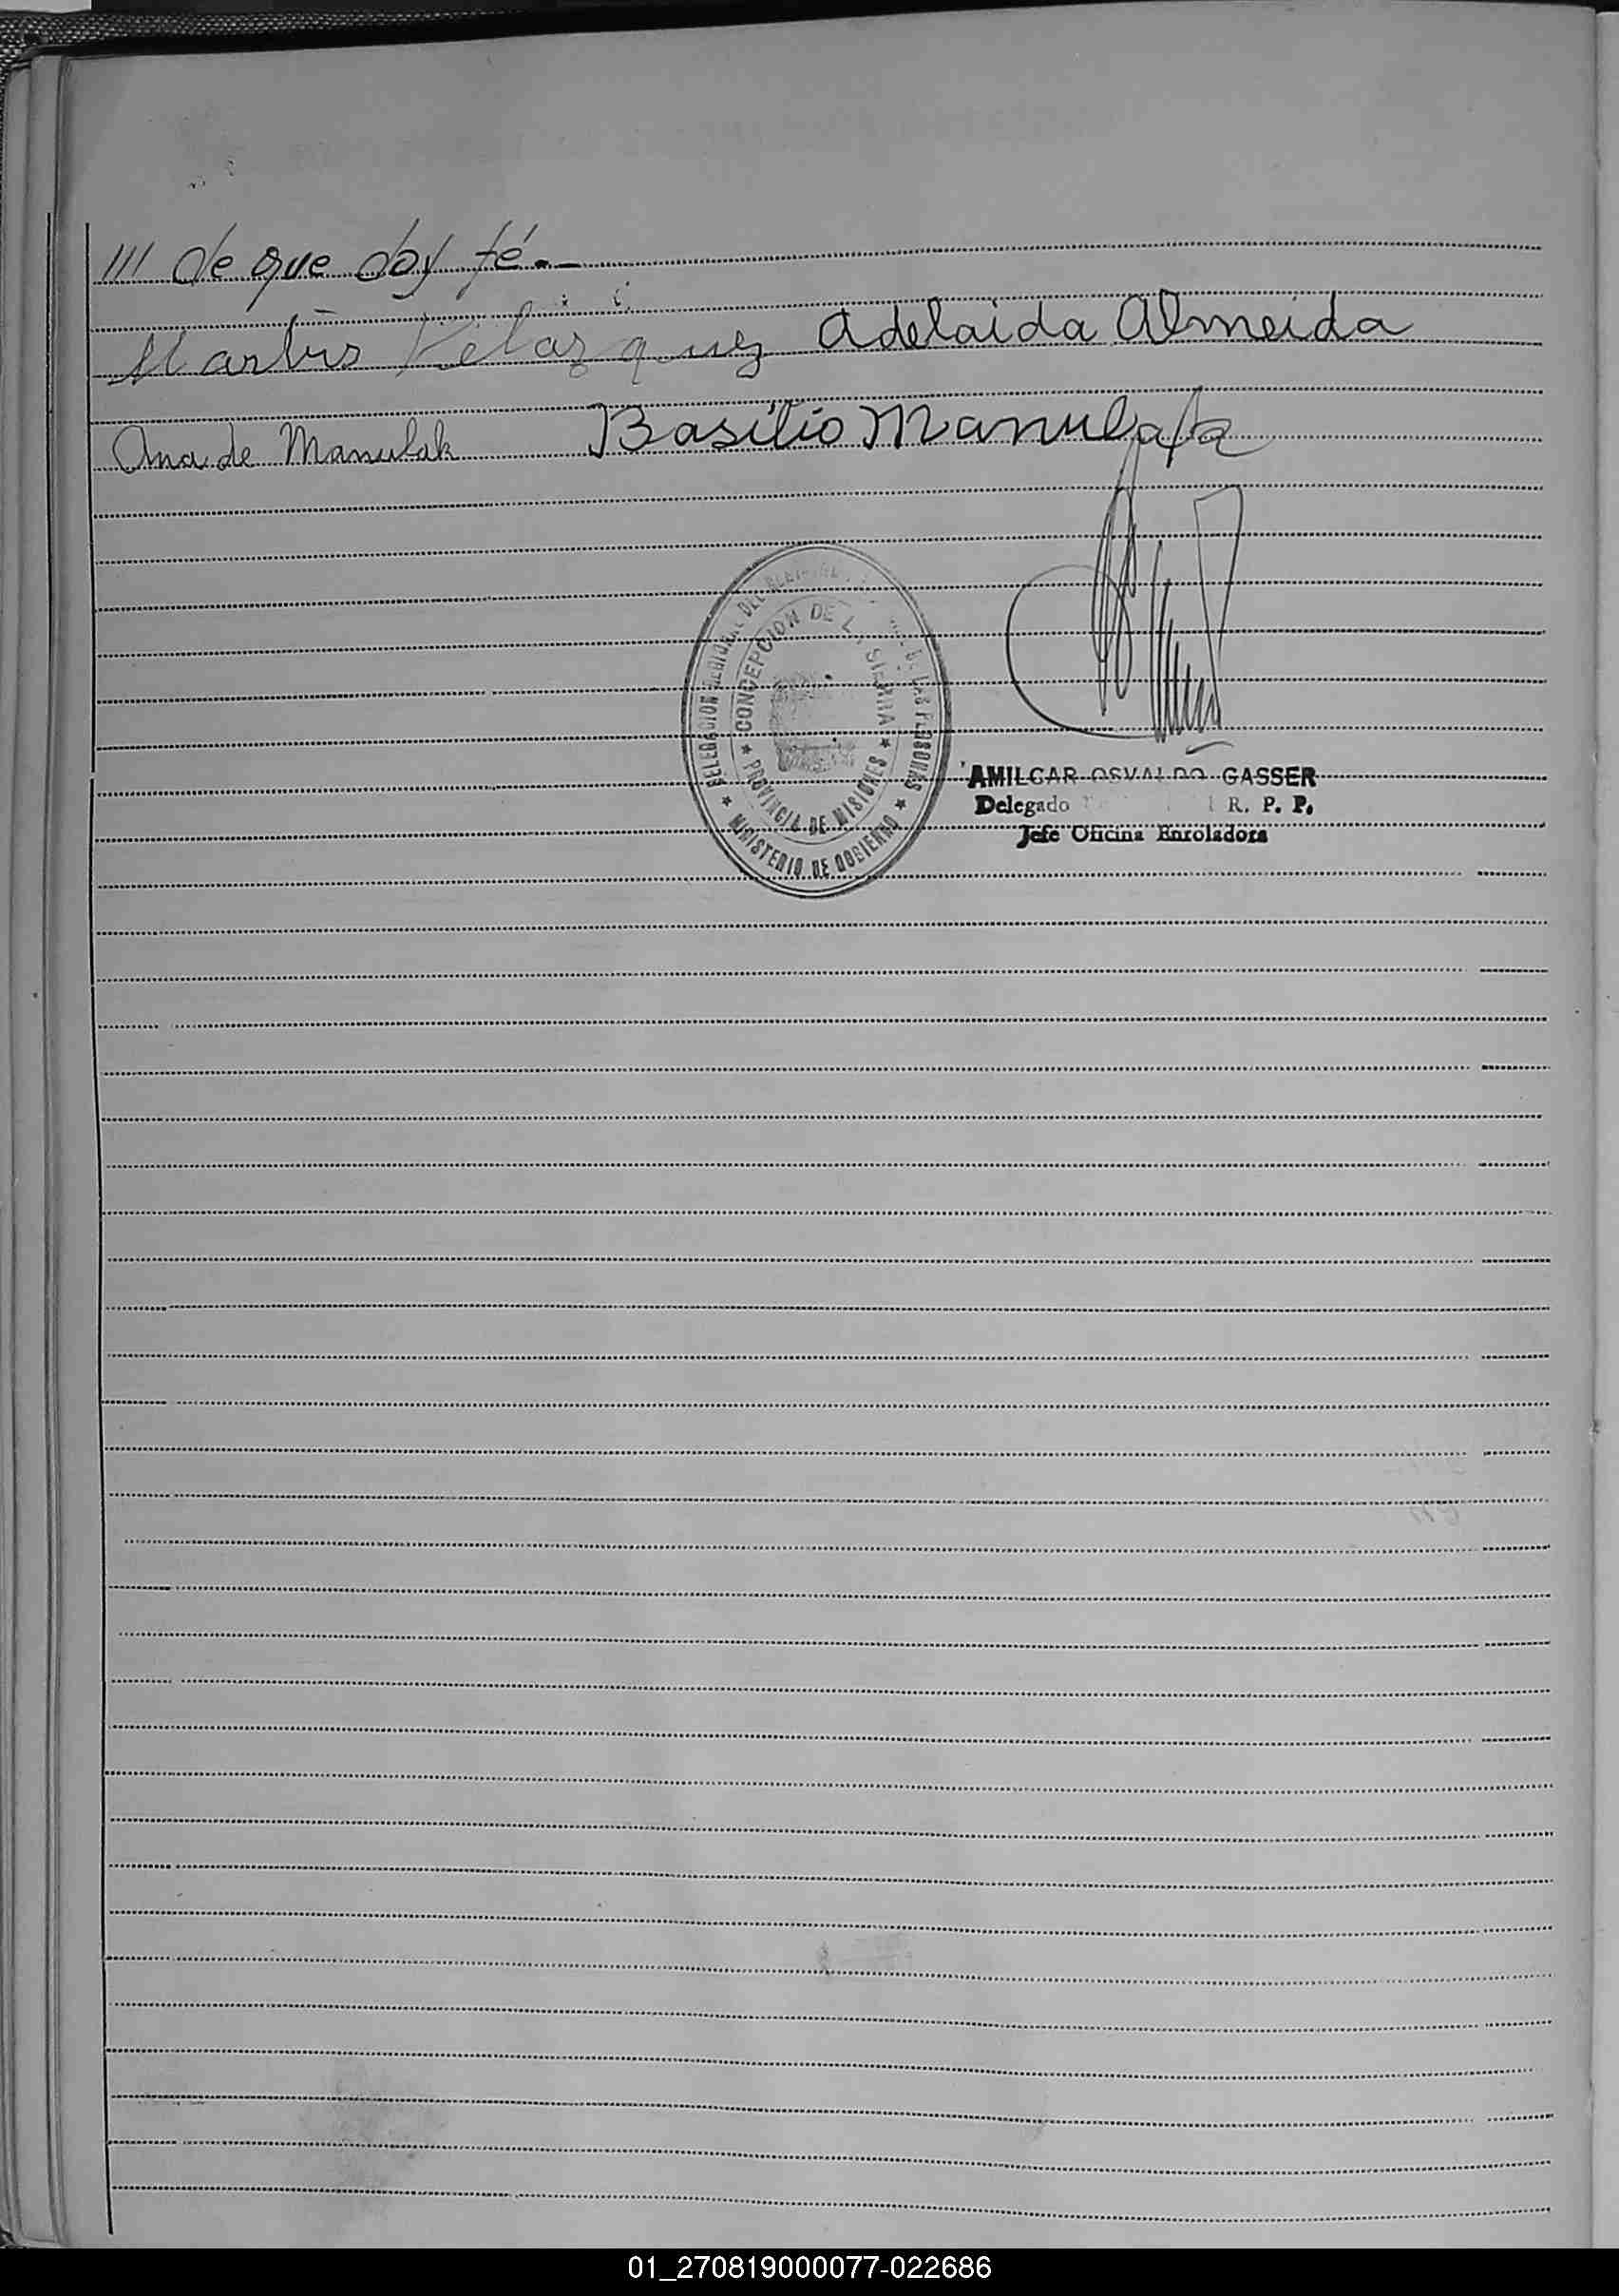 /// de que doy fé.-
Martin Velazquez Adelaida Almeida
Ana de Manulak Basilio Manulak
DELEGACION REGIONAL DEL DE LAS PERSONAS
★ MINISTERIO DE GOBIERNO ★
CONCEPCION DE LA SIERRA
★ PROVINCIA DE MISIONES ★
AMILCAR OSVALDO GASSER
Delegado R. P. P.
Jefe Oficina Enroladora
01_270819000077-022686